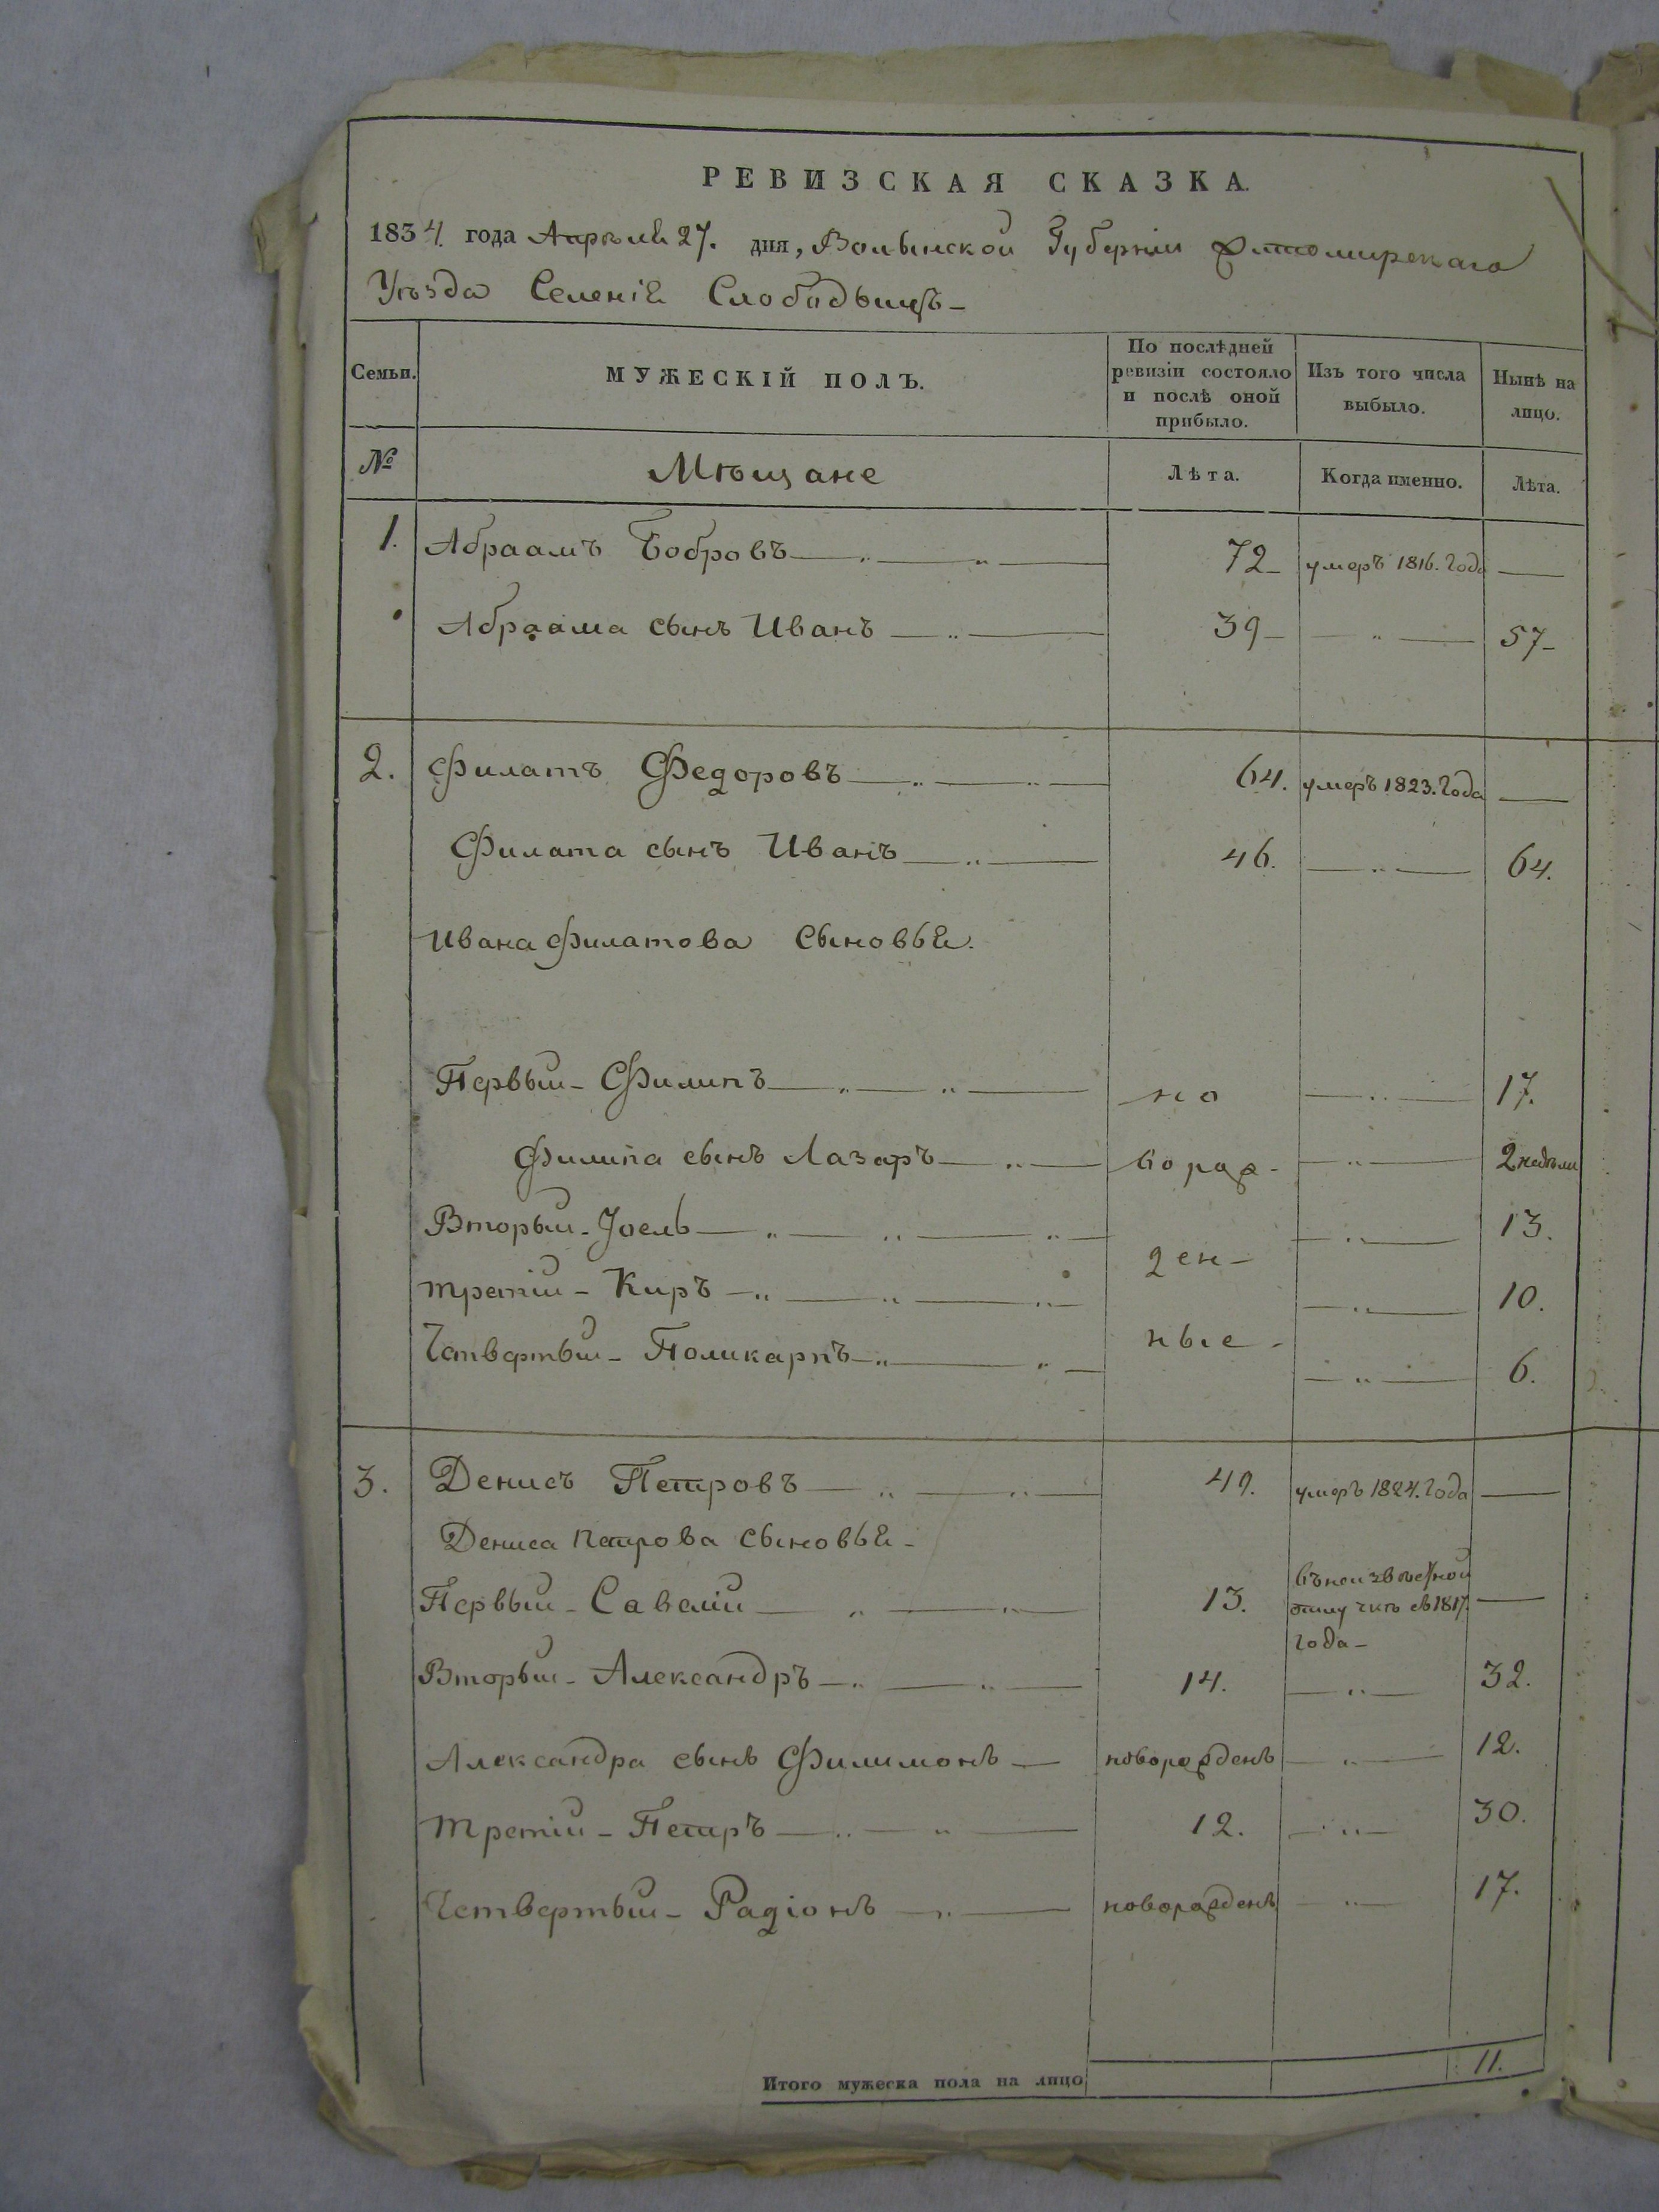 РЕВИЗСКАЯ СКАЗКА.
1834. года Апрѣля 27. дня, Волынской Губерніи Житомирскаго
Уѣзда Селенія Слободыщъ
Семьи. МУЖЕСКІЙ ПОЛЪ. По послѣдней ревизіи состояло и послѣ оной прибыло. Изъ того числа выбыло. Нынѣ на лицо.
№ Мѣщане Лѣта. Когда именно. Лѣта.
1. Абраамъ Бобровъ 72 умеръ 1816. года
Абраама сынъ Иванъ 39 57
2. Филатъ Федоровъ 64. умеръ 1823. года
Филата сынъ Иванъ 46. 64.
Ивана Филатова сыновья.
Первый Филипъ но 17.
Филипа сынъ Лазаръ вораж 2 недѣли
Вторый Іоель 13.
ден
третій Киръ 10.
ные
Четвертый Поликарпъ 6.
3. Денисъ Петровъ 49. умеръ 1824. года
Дениса Петрова сыновья
Первый Савелій 13. въ неизвѣстной отлучкѣ съ 1817 года
Вторый Александръ 14. 32.
Александра сынъ Филимонъ новорожденъ 12.
третій Петръ 12. 30.
Четвертый Радіонъ новорожденъ 17.
Итого мужеска пола на лицо 11.